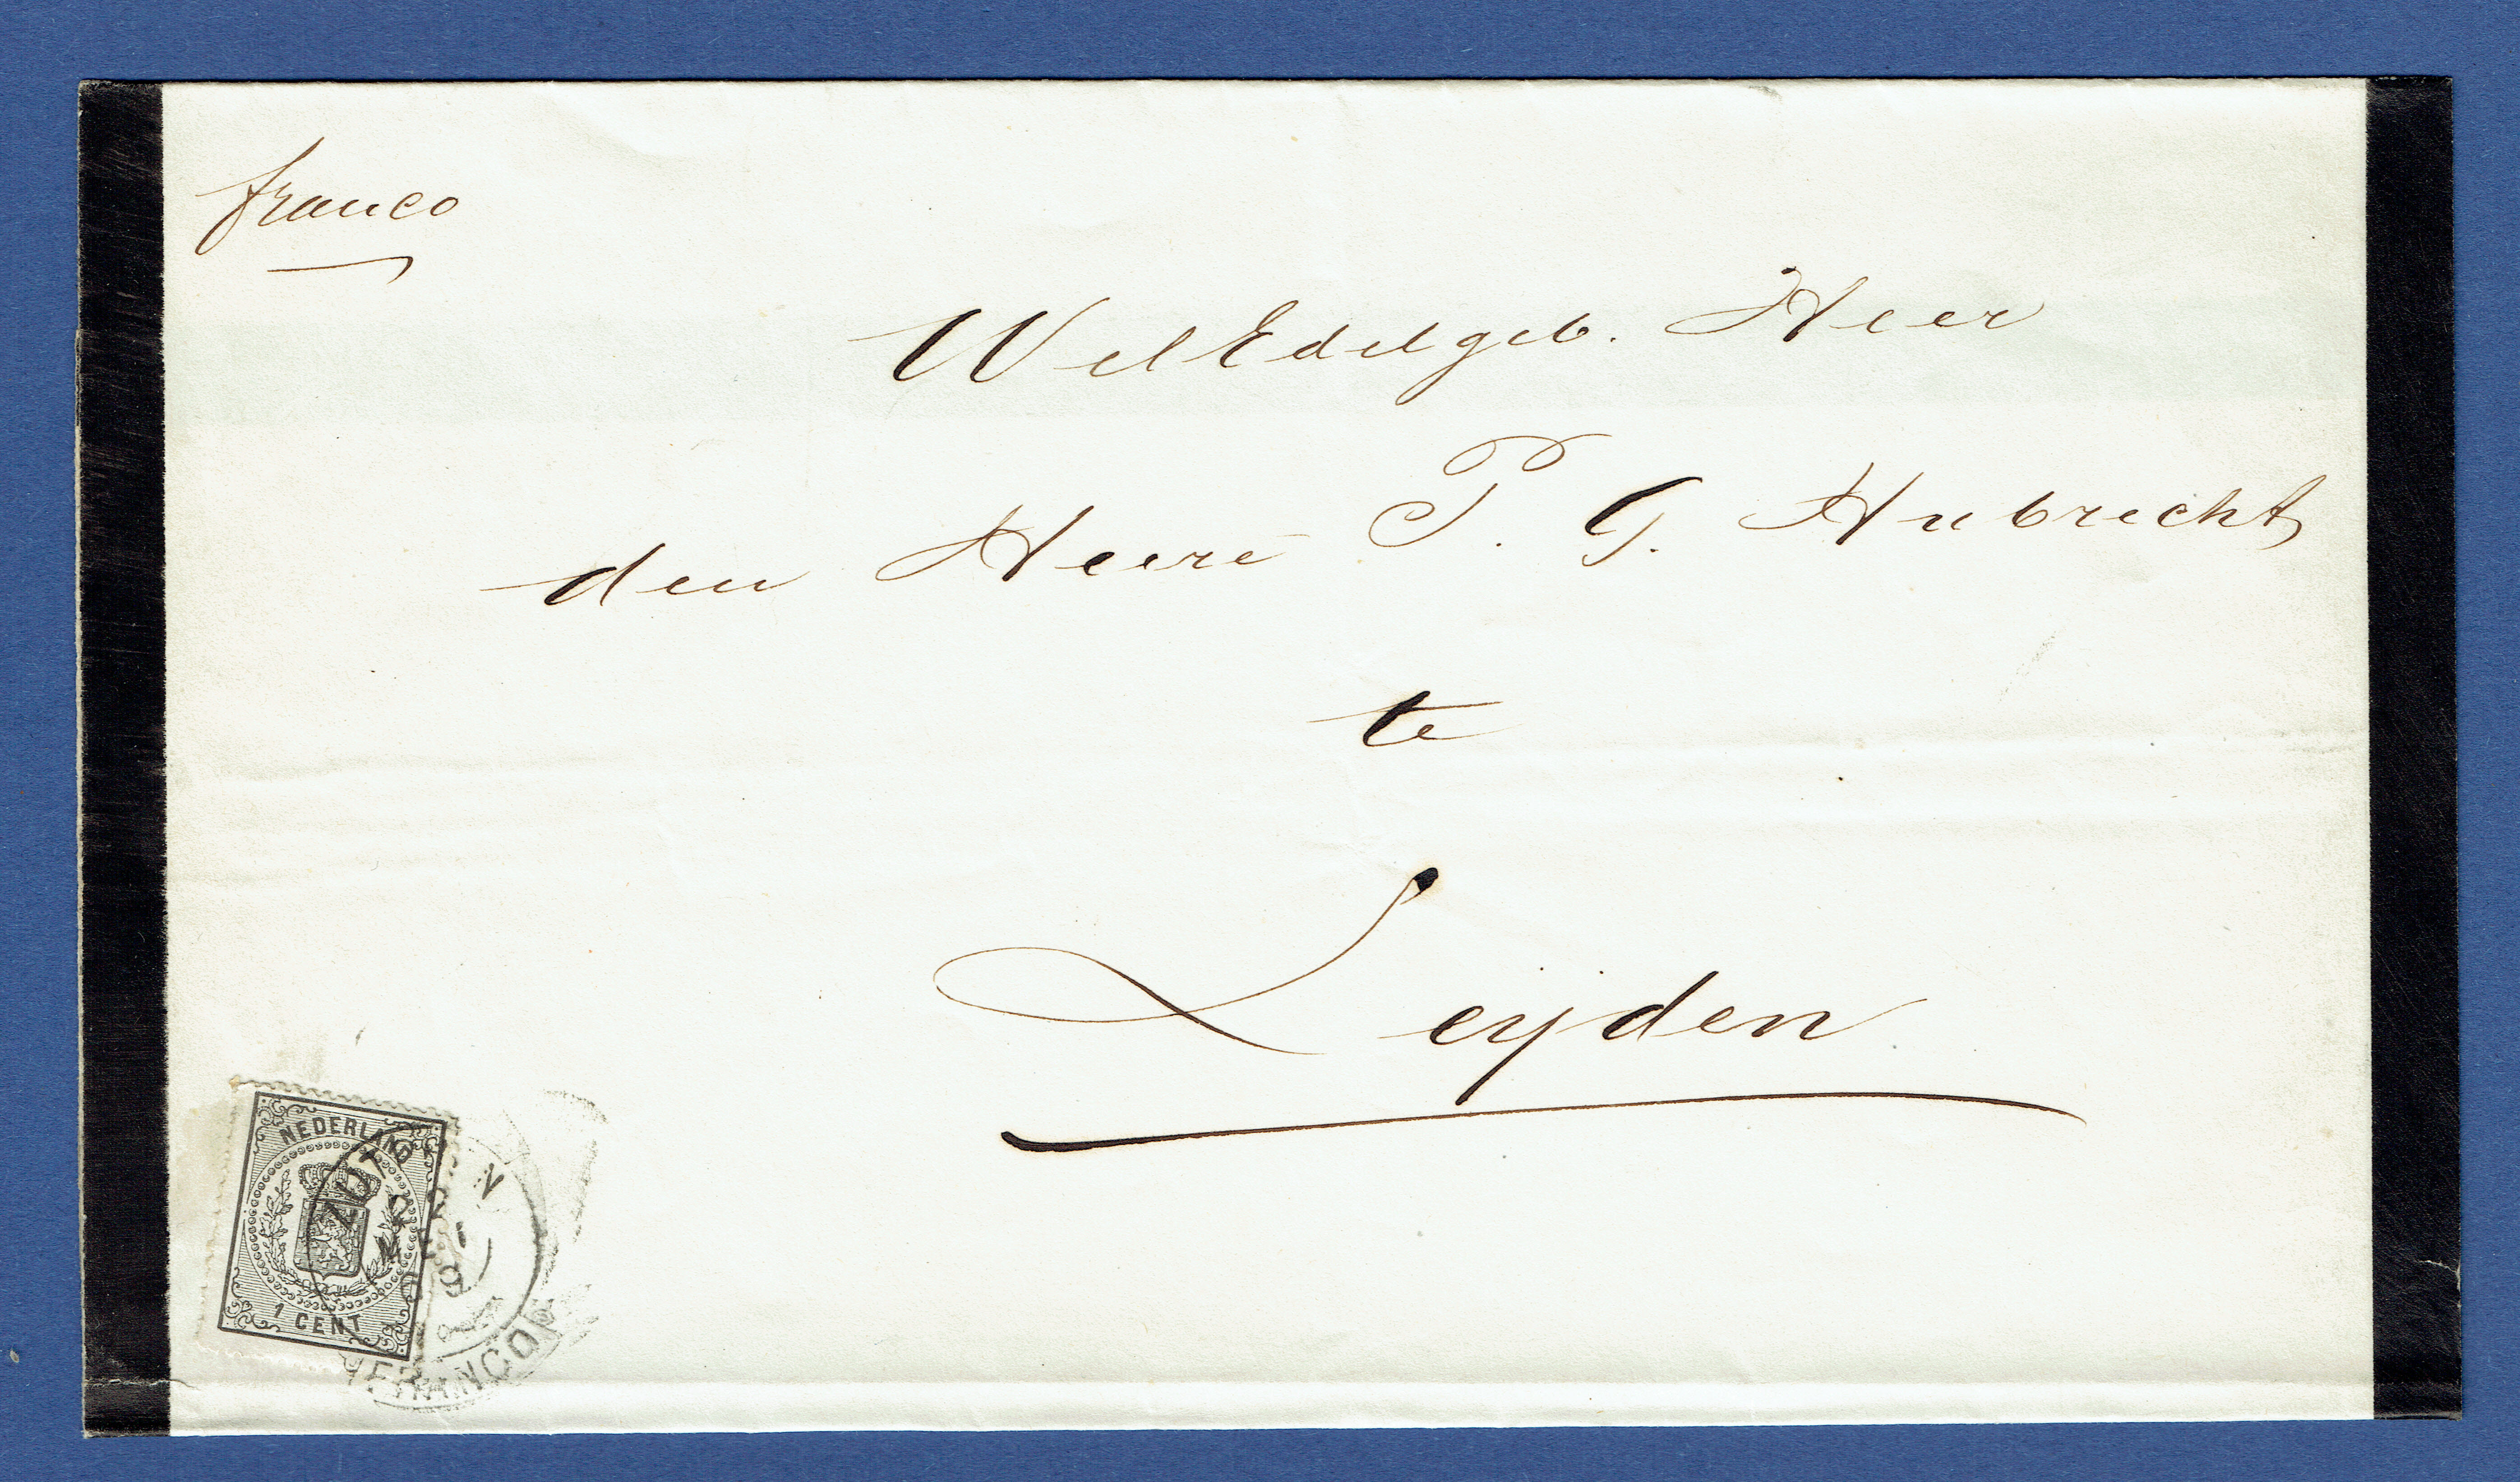 franco
WelEdelgeb. Heer
den Heere P. G. Hubrecht
te
Leyden
NEDERLAND
1 CENT
ZUTPHEN
22
MEI
69
FRANCO